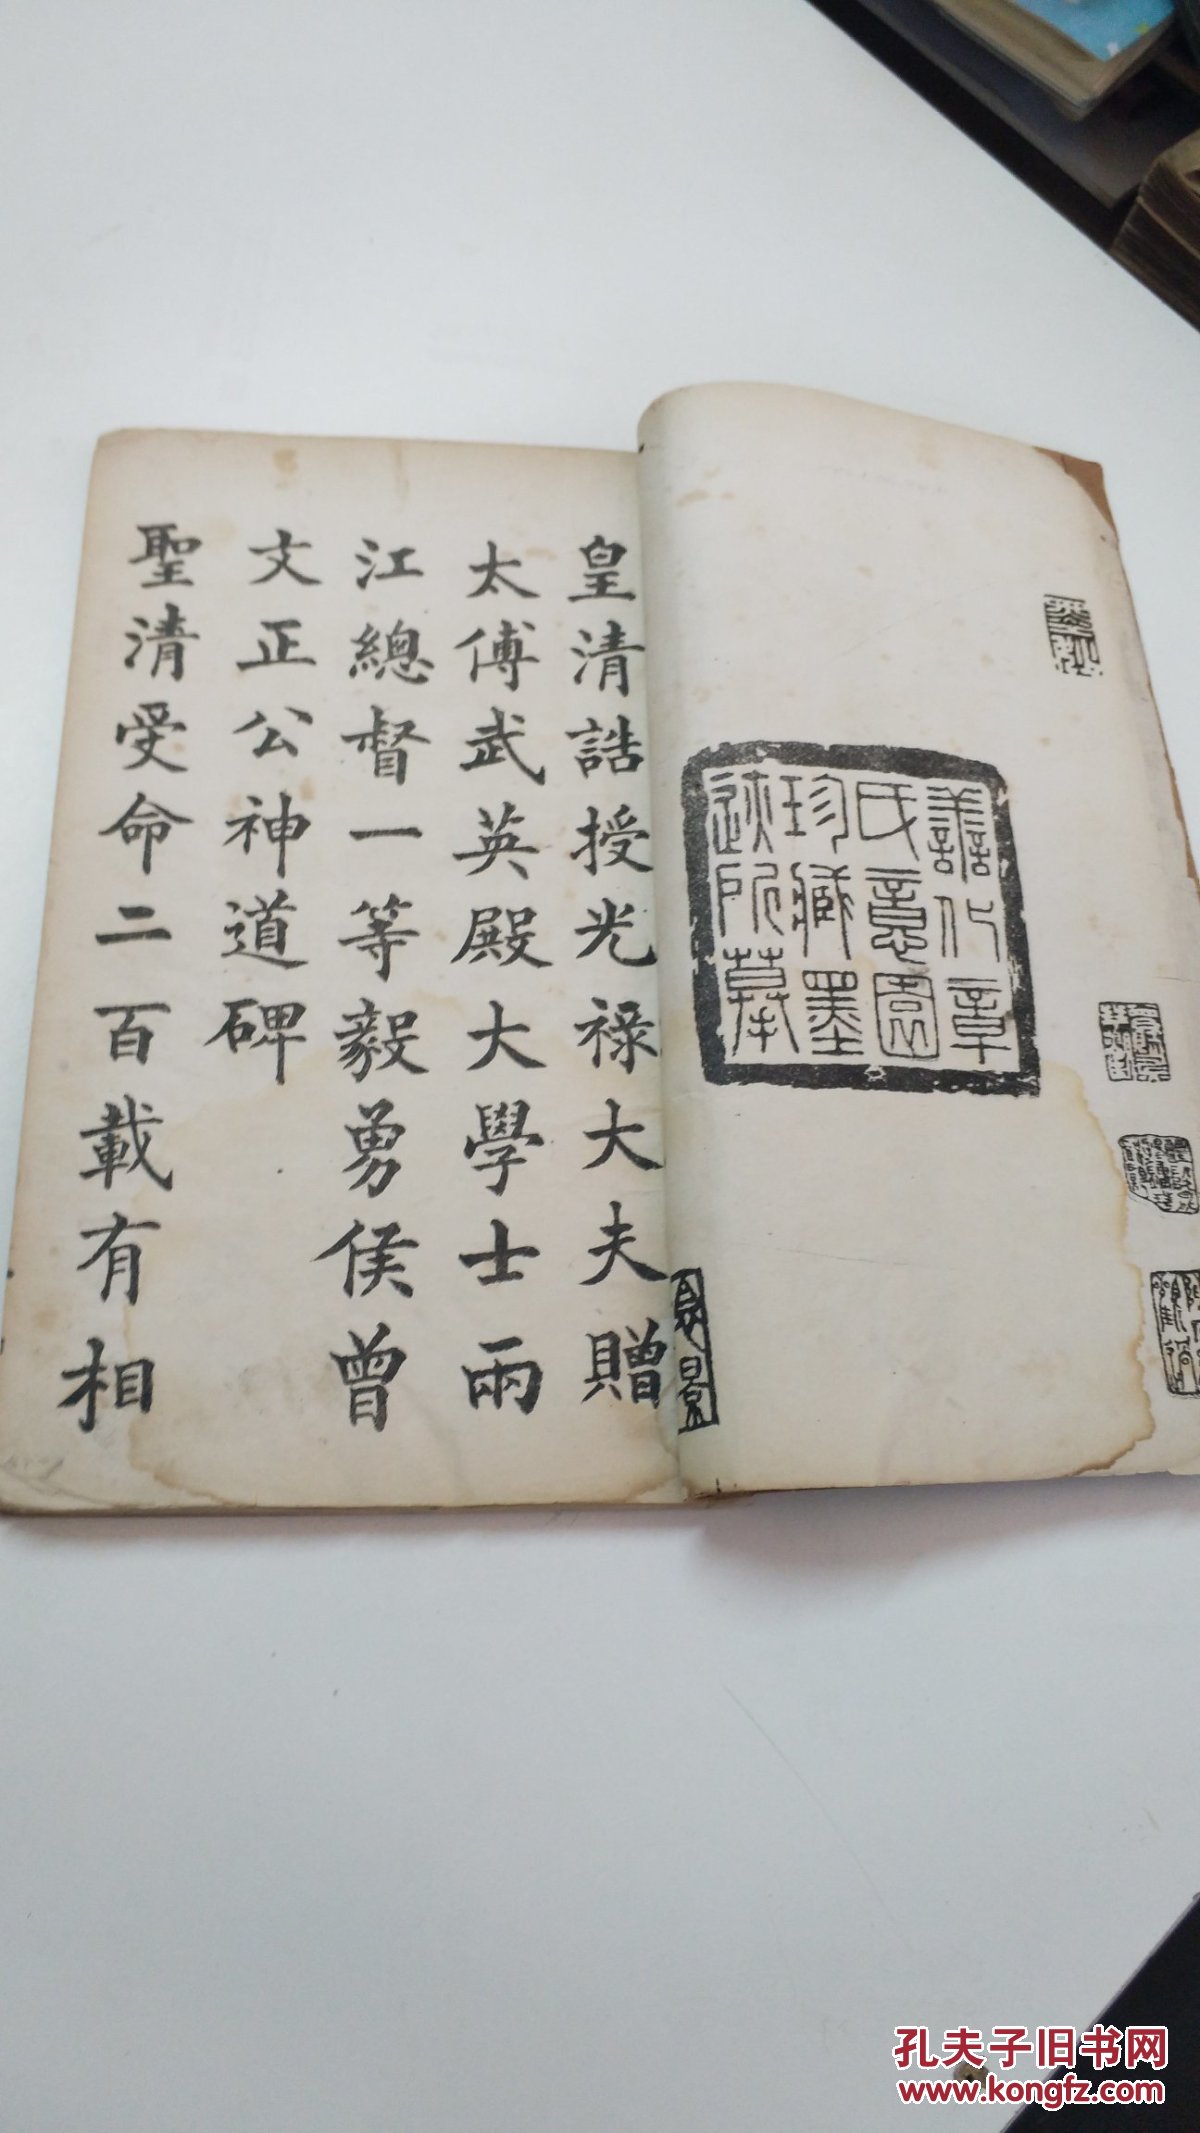 善化章
氏憙園
珍藏墨
迹所摹
皇清誥授光祿大夫贈
太傅武英殿大學士兩
江總督一等毅勇侯曾
文正公神道碑
聖清受命二百載有相
孔夫子旧书网
www.kongfz.com